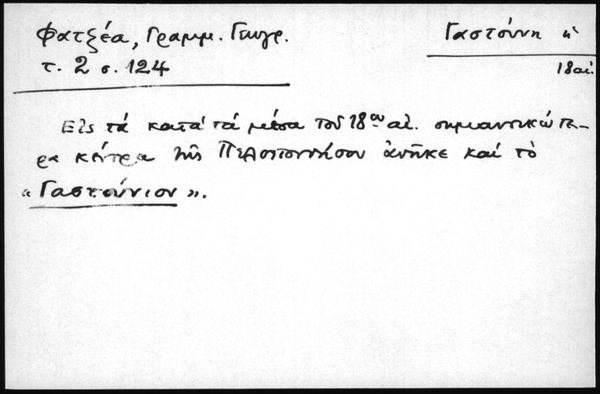 Φατζέα, Γραμμ. Γεωγρ.
τ. 2 σ. 124
Γαστούνη ἡ
18 αἰ.
Εἰς τά κατά τά μέσα τοῦ 18ου αἰ. σημαντικώτε-
ρα κέντρα τῆς Πελοποννήσου ἀνῆκε καί τὸ
«Γαστούνιον».